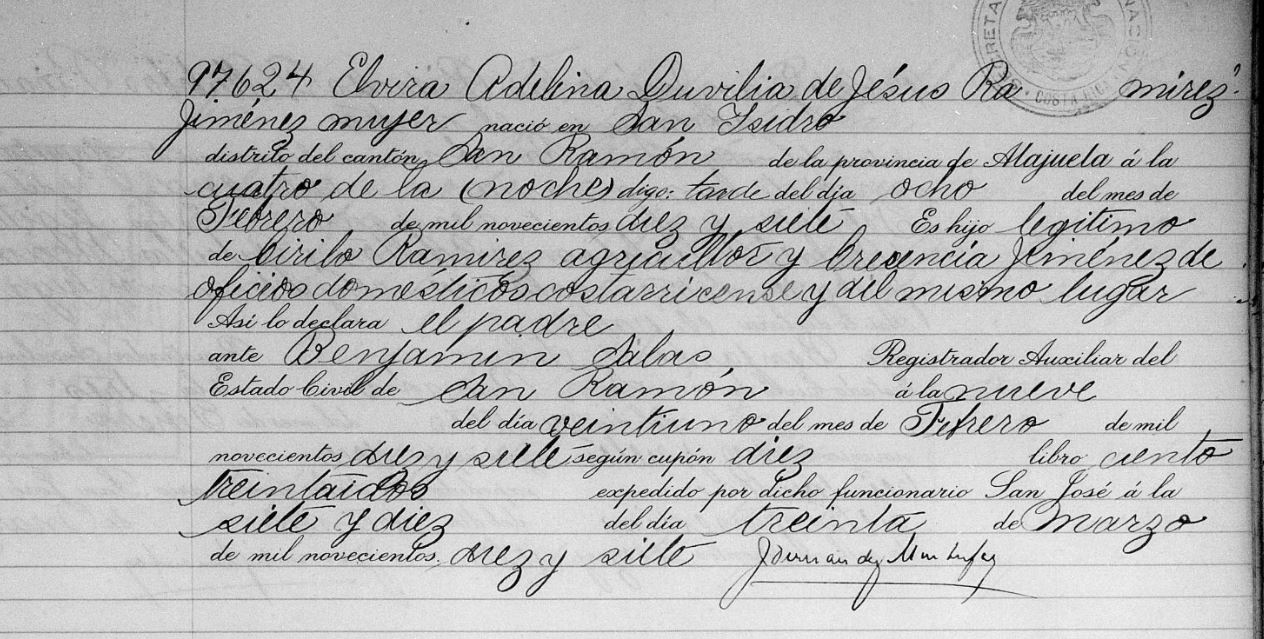 97624 Elvira Adelina Duvilia de Jésus Ramirez
Jiménez mujer nació en San Isidro
distrito del cantón San Ramón de la provincia de Alajuela á la
cuatro de la (noche) digo: tarde del día ocho del mes de
Febrero de mil novecientos diez y siete Es hijo legitimo
de Cirilo Ramirez agricultor y Crecencia Jiménez de
oficios domésticos costarricense y del mismo lugar
Asi lo declara el padre
ante Benjamin Salas Registrador Auxiliar del
Estado Civil de San Ramón á la nueve
del día veintiuno del mes de Febrero de mil
novecientos diez y siete según cupón diez libro ciento
treintaidos expedido por dicho funcionario San José á la
siete y diez del día treinta de marzo
de mil novecientos diez y siete
COSTA RICA